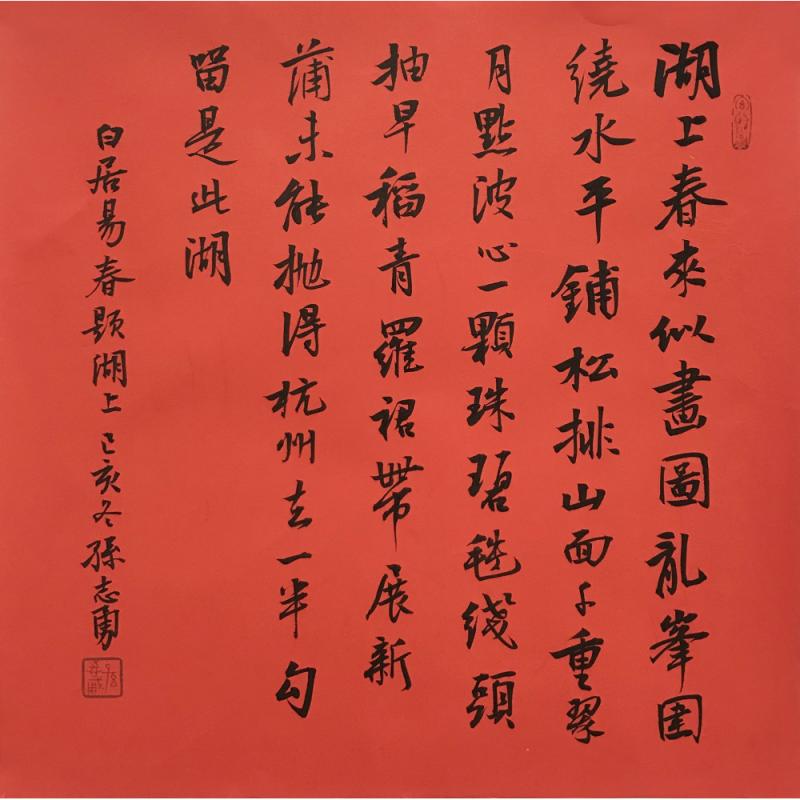 湖上春來似畫圖亂峯圍
繞水平鋪松排山面千重翠
月點波心一顆珠碧毯綫頭
抽早稻青羅裙帶展新
蒲未能抛得杭州去一半勾
留是此湖
白居易春题湖上己亥冬孫志勇